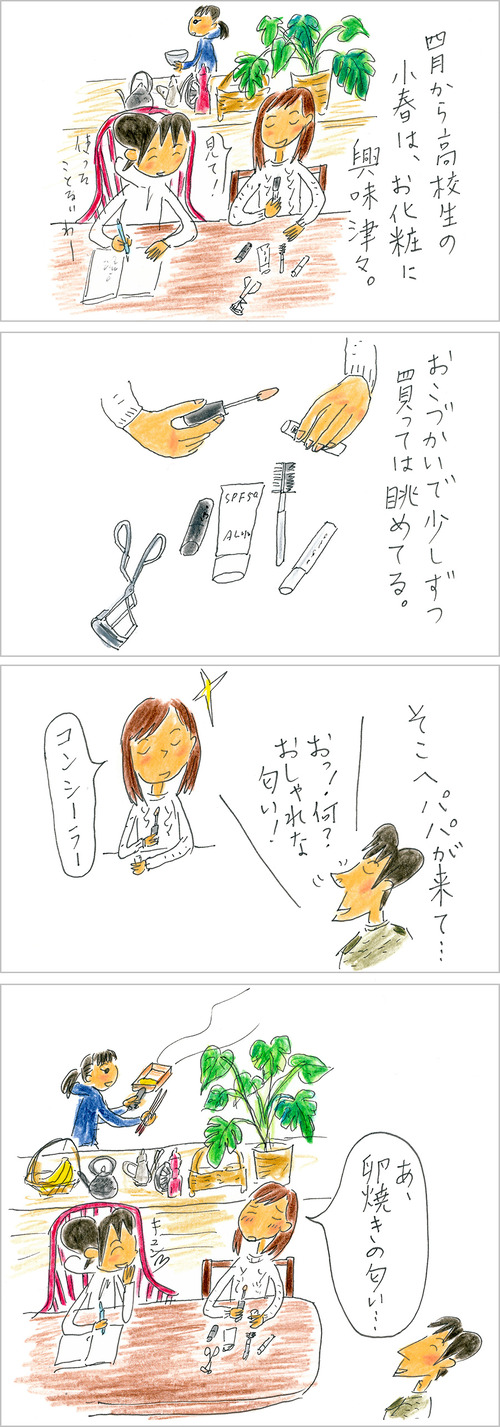 四月から高校生の
小春は、お化粧に
興味津々。
見て!
使った
ことないわー
おこづかいで少しずつ
買っては眺めてる。
SPF50
そこへパパが来て…
おっ!何?
おしゃれな
匂い!
コンシーラー
あ、
卵焼きの匂い…